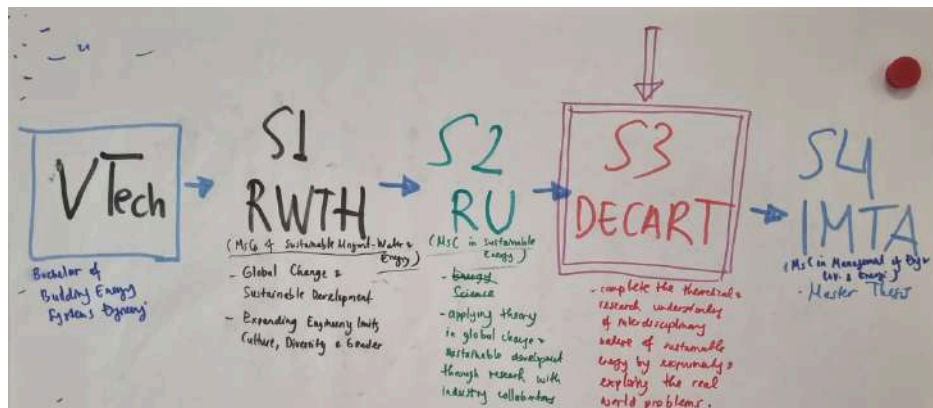 VTech
Bachelor of
Building Energy
Systems
S1
RWTH
(MSc of Sustainable Magmt-Water &
Energy)
- Global Change &
Sustainable Development
- Expanding Engineering limits
Culture, Diversity & Gender
S2
RU
(MSc in Sustainable
Energy)
- Energy
Science
- applying theory
in global change &
sustainable development
through research with
industry
S3
DECART
- complete the theoretical &
research understanding
of interdisciplinary
nature of sustainable
energy by &
exploring the real
world problems.
S4
IMTA
(MSc in Management of
- Master Thesis